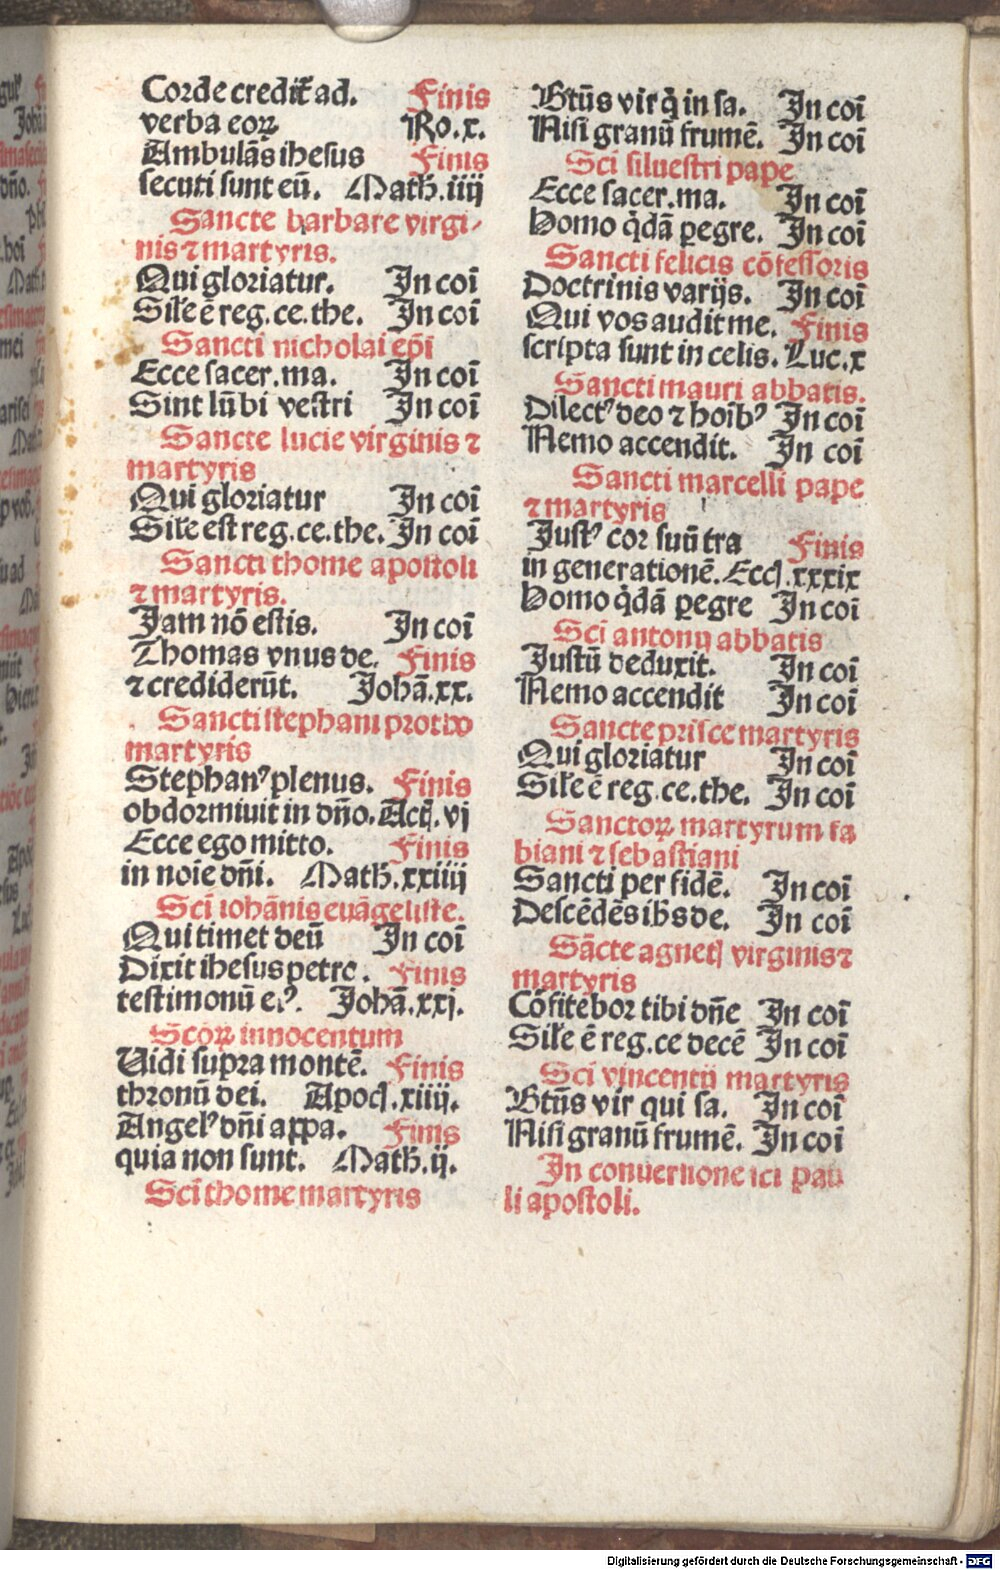 Corde credit̄ ad. Finis
verba eoꝝ Ro.x.
Ambulās ihesus Finis
secuti sunt eū. Math̄.iiij
Sancte barbare virgi-
nis ⁊ martyris.
Qui gloriatur. In coī
Sil̄e ē reg.ce.the. In coī
Sancti nicholai ep̄i
Ecce sacer.ma. In coī
Sint lūbi vestri In coī
Sancte lucie virginis ⁊
martyris
Qui gloriatur In coī
Sil̄e est reg.ce.the. In coī
Sancti thome apostoli
⁊ martyris.
Jam nō estis. In coī
Thomas vnus de. Finis
⁊ crediderūt. Johā.xx.
Sancti stephani protho
martyris
Stephanꝰ plenus. Finis
obdormiuit in dn̄o. Actꝭ. vj
Ecce ego mitto. Finis
in noīe dn̄i. Math̄.xxiiij
Scī iohānis euāgeliste.
Qui timet deū In coī
Dixit ihesus petro. Finis
testimoniū eiꝰ. Johā.xxj.
Sc̄oꝝ innocentum
Uidi supra montē. Finis
thronū dei. Apocꝭ.xiiij.
Angelꝰ dn̄i appa. Finis
quia non sunt. Math̄.ij.
Scī thome martyris
Btūs vir q̄ in sa. In coī
Nisi granū frumē. In coī
Scī siluestri pape
Ecce sacer.ma. In coī
Homo q̄dā ꝑegre. In coī
Sancti felicis cōfessoris
Doctrinis varijs. In coī
Qui vos audit me. Finis
scripta sunt in celis. Luc.x
Sancti mauri abbatis.
Dilectꝰ deo ⁊ hoīb⁹ In coī
Nemo accendit. In coī
Sancti marcelli pape
⁊ martyris
Justꝰ cor suū tra Finis
in generationē. Eccꝭ.xxxix
Homo q̄dā ꝑegre In coī
Scī antonij abbatis
Justū deduxit. In coī
Nemo accendit In coī
Sancte prisce martyris
Qui gloriatur In coī
Sil̄e ē reg.ce.the. In coī
Sanctoꝝ martyrum fa
biani ⁊ sebastiani
Sancti per fidē. In coī
Descēdēs ih̄s de. In coī
Sācte agnetꝭ virginis ⁊
martyris
Cōfitebor tibi dn̄e In coī
Sil̄e ē reg.ce decē In coī
Scī vincentij martyris
Btūs vir qui sa. In coī
Nisi granū frumē. In coī
In conuersione scī pau
li apostoli.
Digitalisierung gefördert durch die Deutsche Forschungsgemeinschaft - DFG